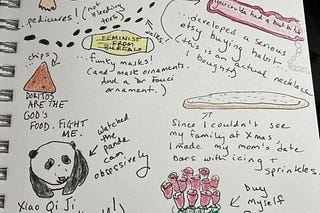 pedicures! (not bleeding
toes)
walks.
FEMINIST
FROM
...funky masks!
(and mask ornaments.
And a Dr Fauci
ornament.)
chips
DORITOS
ARE THE
GOD'S
FOOD. FIGHT
ME.
...developed a serious
etsy buying habit.
(this is an actual necklace
I bought)
Since I couldn't see
my family at Xmas,
I made my mom's date
bars with icing +
sprinkles.
watched
the
panda
cam
obsessively
Xiao Qi Ji
buy
myself